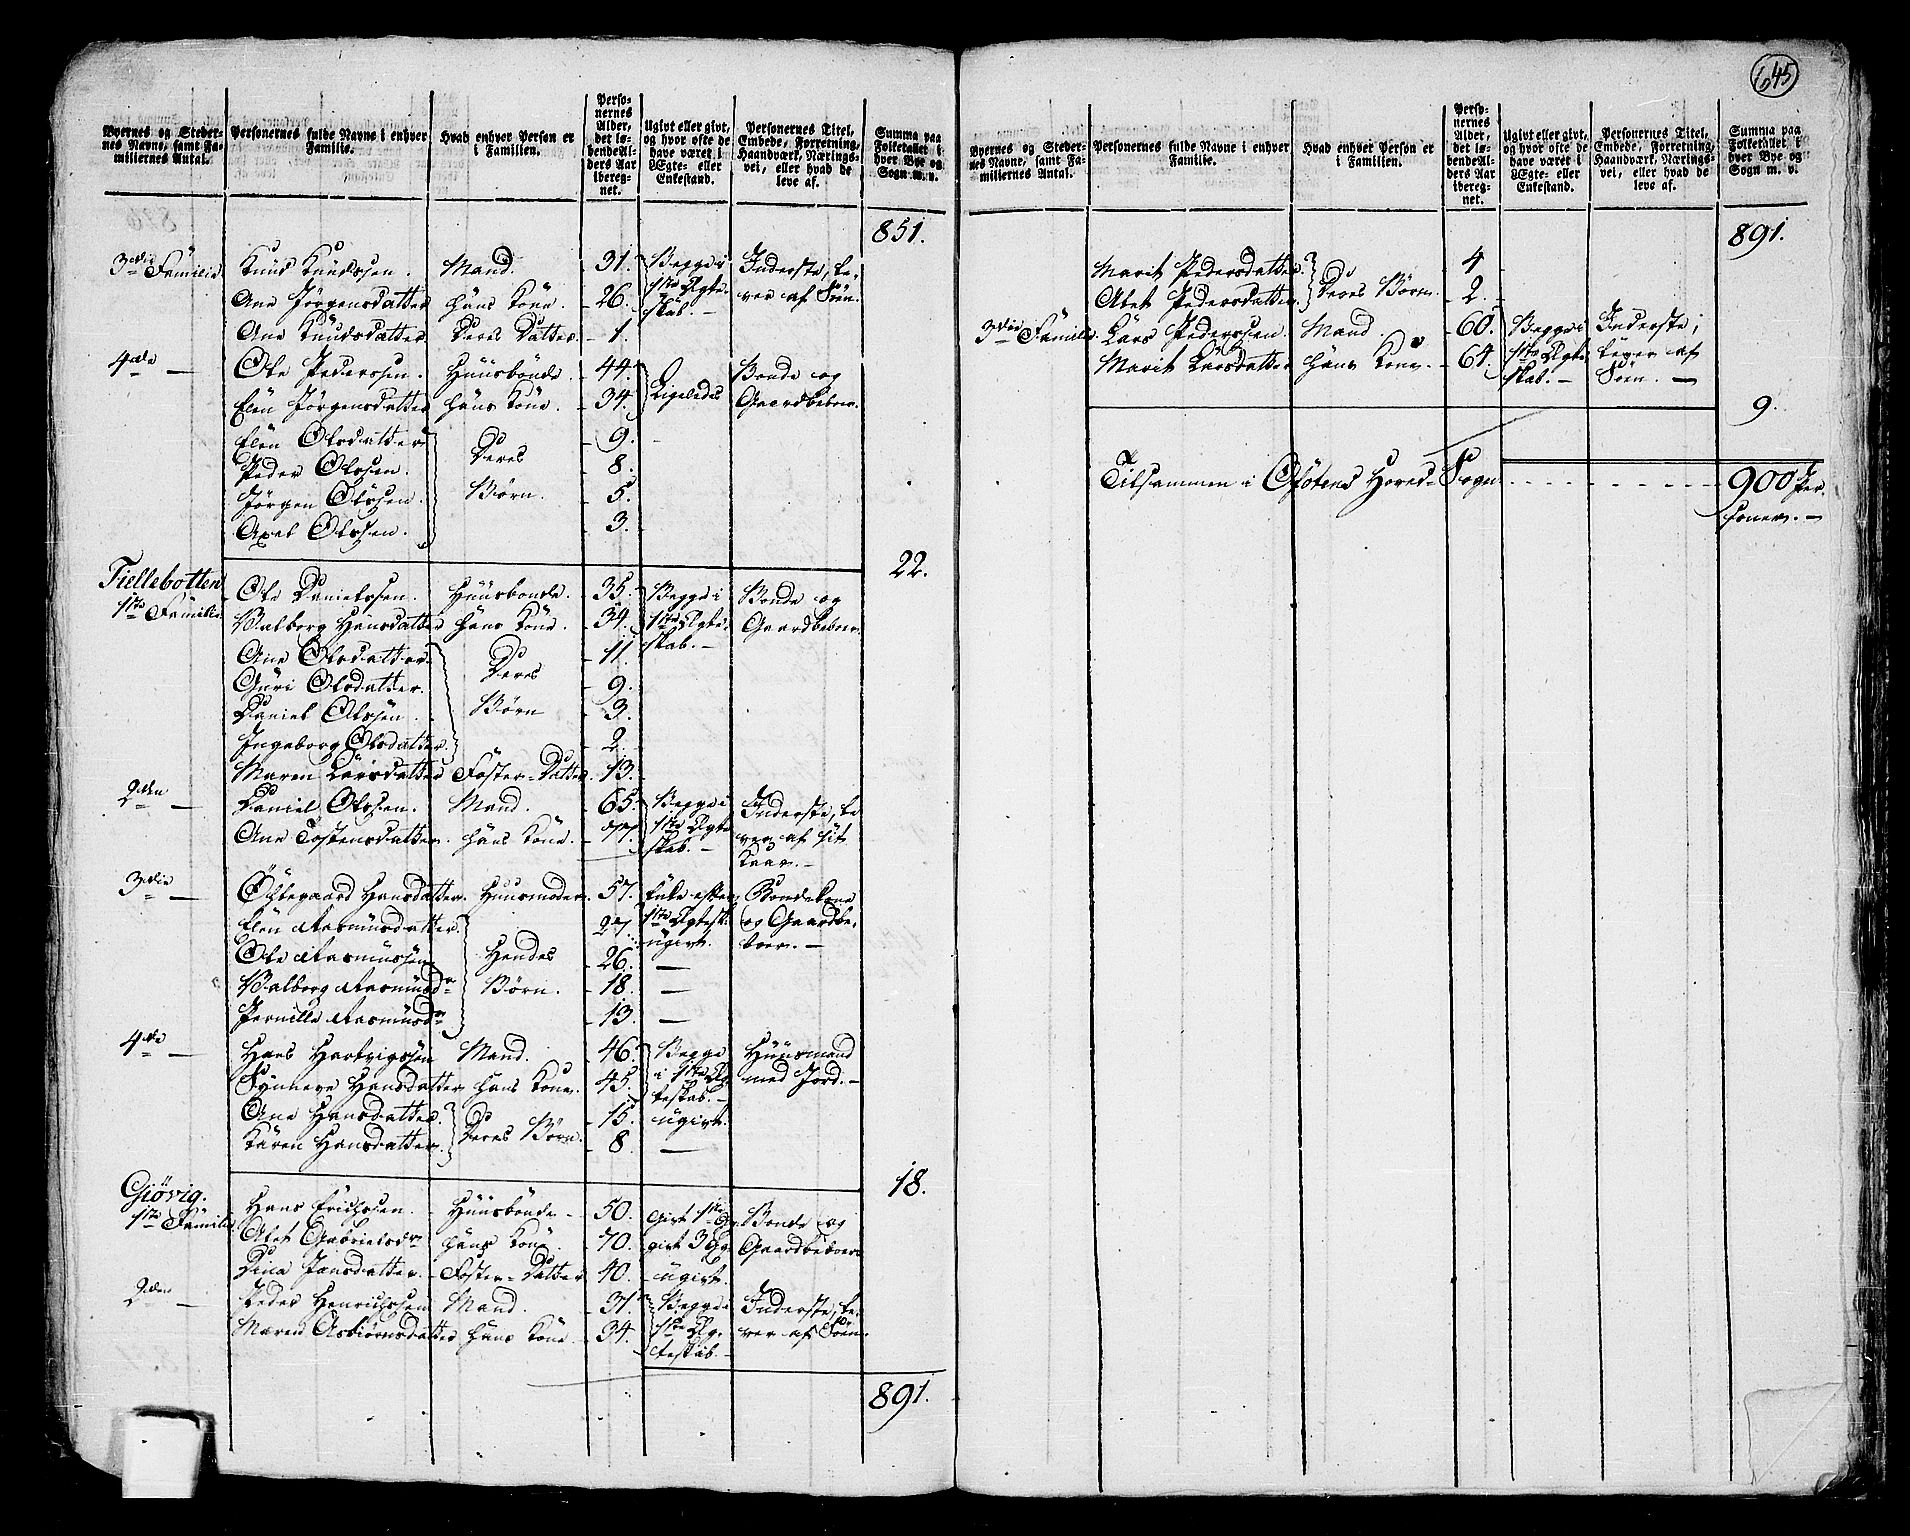 645
Byernes og Stedernes Navne, samt Familiernes Antal.
Personernes fulde Navne i enhver Familie.
Hvad enhver Person er i Familien.
Personernes Alder, det løbende Alders Aar iberegnet.
Ugivt eller givt, og hvor ofte de have været i Ægte- eller Enkestand.
Personernes Titel, Embede, Forretning, Haandværk, Næringsvei, eller hvad de leve af.
Summa paa Folketallet i hver Bye og Sogn m. v.
851.
3die Familie Knud Knudssen. Mand. 31. Begge i 1ste Ægteskab. Inderste, lever af Søen
Ane Jørgensdatter hans Kone. 26.
Ane Knudsdatter Deres Datter. 1.
4de — Ole Pederssen. Huusbonde. 44. Ligeledes Bonde og Gaardbeboer.
Elen Jørgensdatter hans Kone. 34.
Elen Olsdatter Deres Børn. 9.
Peder Olssen. 8.
Jørgen Olssen. 5.
Axel Olssen. 3.
22.
Fiellebotten
1ste Familie Ole Danielssen. Huusbonde. 35. Begge i 1ste Ægteskab. — Bonde og Gaardbeboer.
Valborg Hansdatter hans Kone. 34.
Ane Olsdatter Deres Børn 11.
Guri Olsdatter. 9.
Daniel Olssen. 3.
Ingeborg Olsdatter. 2.
Maren Larsdatter Foster-Datter. 13.
2den — Daniel Olssen. Mand. 65. Begge i 1ste Ægteskab. — Inderste, lever af sit Kaar. —
Ane Tostensdatter. hans Kone. 77.
3die — Ollegaard Hansdatter. Huusmoder. 57. Enke efter 1ste Ægtesk. Bondekone og Gaardbeboer. —
Elen Rasmusdatter. Hendes Børn. 27. ugivt.
Ole Rasmussen 26. —
Valborg Rasmusdr 18. —
Pernille Rasmusdr 13. —
4de — Hans Hartvigssen Mand. 46. Begge i 1ste Ægteskab. — Huusmand med Jord. —
Synneve Hansdatter hans Kone. 45.
Ane Hansdatter. Deres Børn. 15. ugivt.
Karen Hansdatter. 8 —
18.
Giøvig.
1ste Familie Hans Erichssen. Huusbonde 50. givt 1ste Æg. Bonde og Gaardbeboer
Alet Gabrielsdr hans Kone. 70. givt 3 Æg.
Dina Jonsdatter. Foster-Datter 40. ugivt.
2den — Peder Henrichssen Mand. 31. Begge i 1ste Ægteskab. — Inderste, lever af Søen.
Maren Asbiørnsdatter hans Kone. 34.
891.
Byernes og Stedernes Navne, samt Familiernes Antal.
Personernes fulde Navne i enhver Familie.
Hvad enhver Person er i Familien.
Personernes Alder, det løbende Alders Aar iberegnet.
Ugivt eller givt, og hvor ofte de have været i Ægte- eller Enkestand.
Personernes Titel, Embede, Forretning, Haandværk, Næringsvei, eller hvad de leve af.
Summa paa Folketallet i hver Bye og Sogn m. v.
891.
Marit Pedersdatter. Deres Børn. 4
Alet Pedersdatter. 2.
3die Familie. Lars Pederssen. Mand. 60. Begge i 1ste Ægteskab. — Inderste, lever af Søen. —
Marit Larsdatter hans Kone. 64.
9.
Tilsammen i Ofotens Hoved-Sogn 900 Personer. —